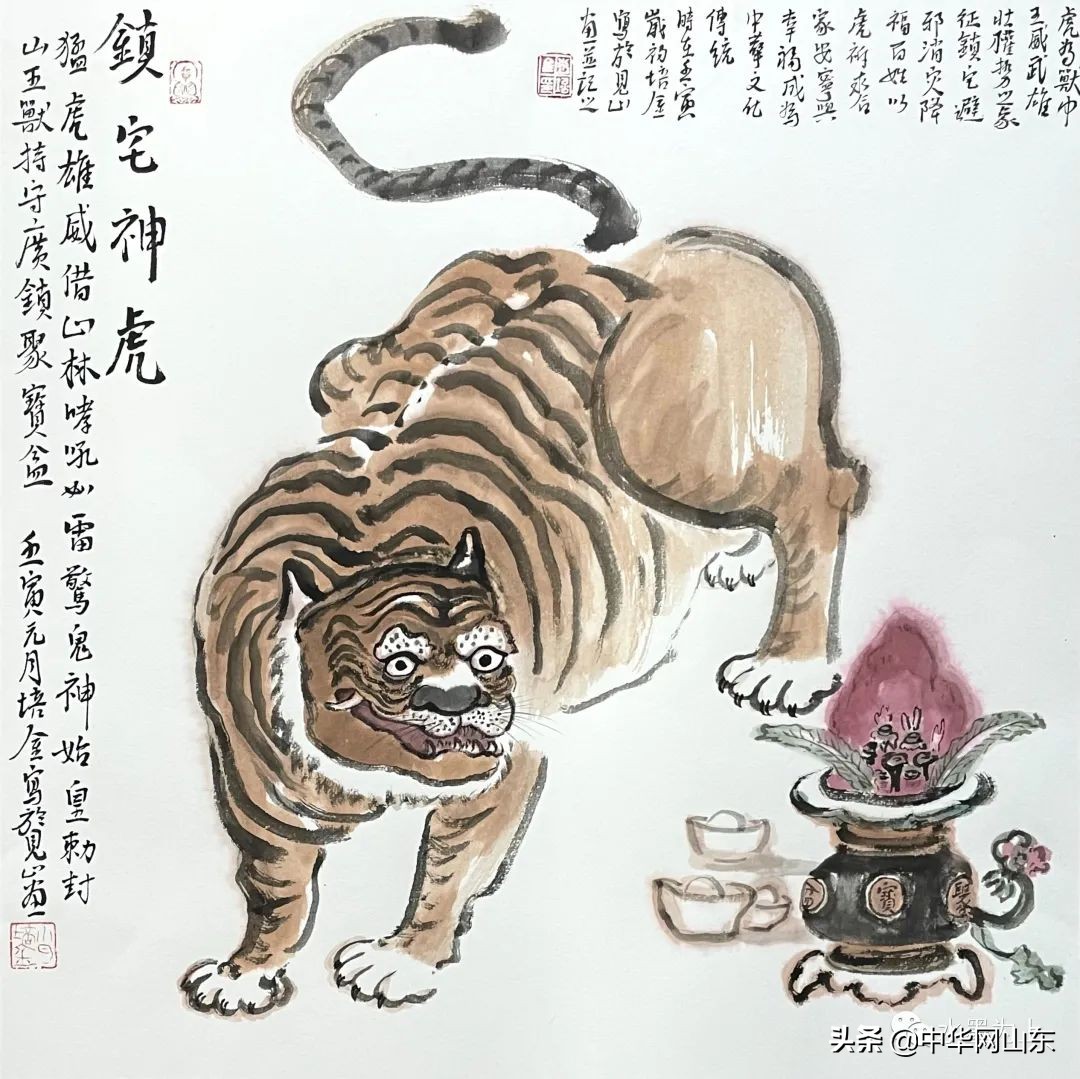 虎为獸中
王威武雄
壯權势之象
征鎮宅避
邪消灾降
福百姓以
虎祈求合
家安寧與
幸福成为
中華文化
傳統
時在壬寅
歲初培金
寫於見山
並記之
鎮宅神虎
猛虎雄威借山林哮吼如雷驚鬼神始皇勅封
山王獸持守廣鎮聚寶盆 壬寅元月培金寫於見山
聚寶
头条 @中华网山东